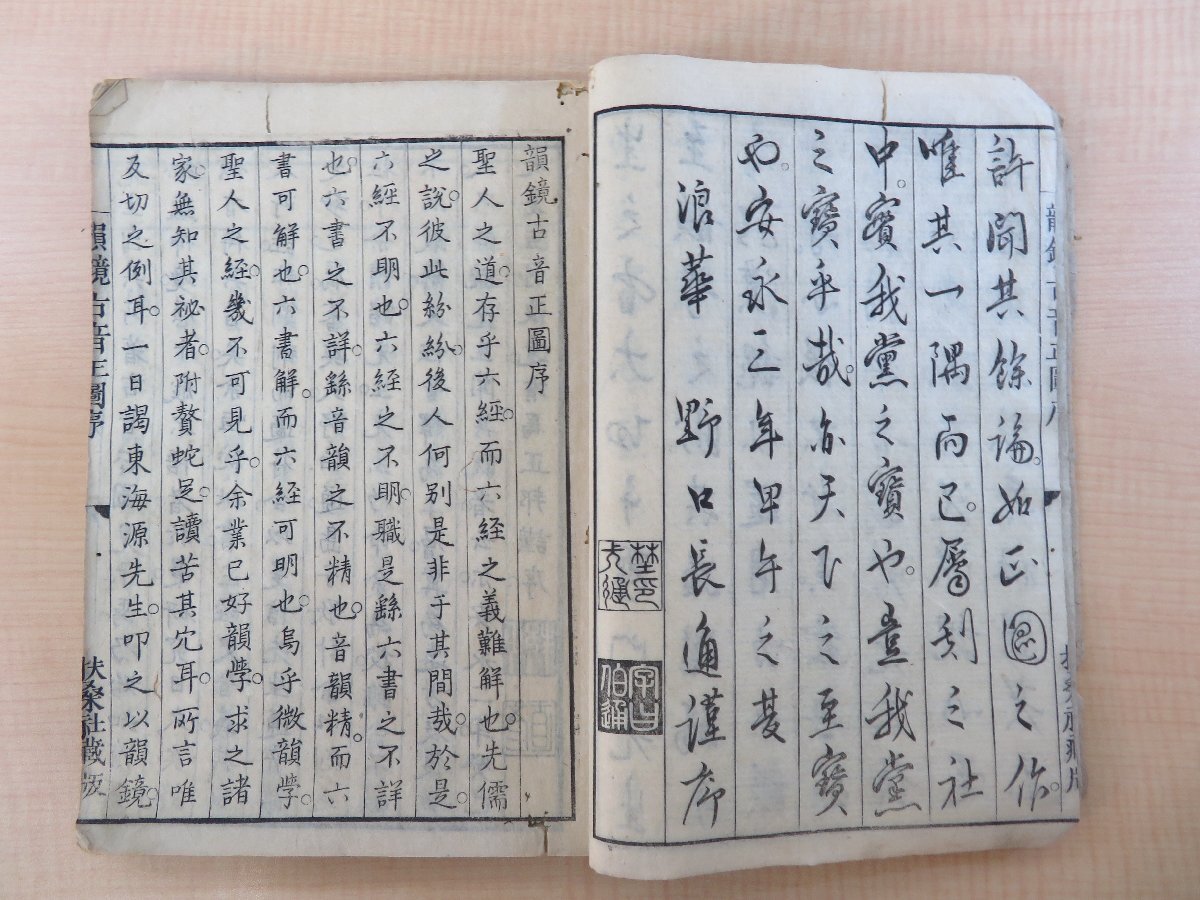 許聞其餘論。如正圖之作。
唯其一隅而已。属刻之社
中。寳我黨之寳也。豈我黨
之寳乎哉。亦天下之至寳
也。安永三年甲午之夏
浪華 野口長通謹序
韻鏡古音正圖序
聖人之道。存乎六經。而六經之義難解也。先儒
之說。彼此紛紛。後人何别是非于其間哉。於是
六經不明也。六經之不明。職是繇六書之不詳
也。六書之不詳。繇音韻之不精也。音韻精。而六
書可解也。六書解。而六經可明也。烏乎微韻學。
聖人之經。幾不可見乎。余業已好韻學。求之諸
家。無知其祕者。附贅蛇足。讀苦其冗耳。所言唯
反切之例耳。一日謁東海源先生。叩之以韻鏡。
韻鏡古音正圖序
扶桑社藏版